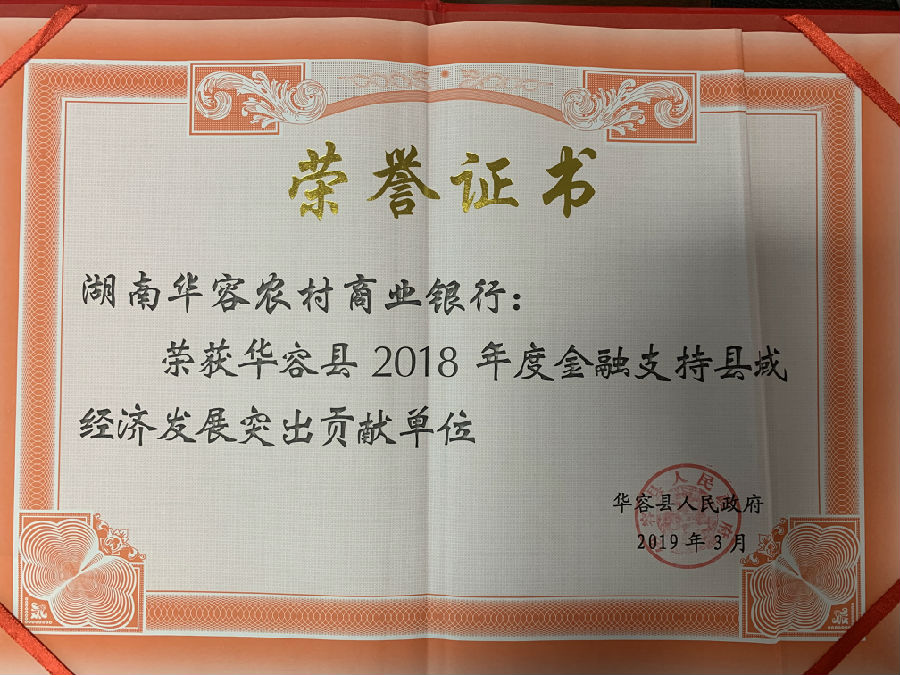 荣誉证书
湖南华容农村商业银行：
荣获华容县 2018 年度金融支持县域
经济发展突出贡献单位
华容县人民政府
2019 年 3 月